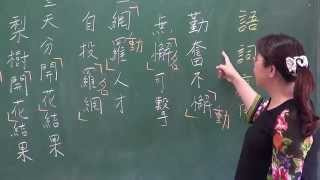 語詞
勤奮不懈 動
無懈可擊 名
網羅人才 動
自投羅網 名
天分開花結果
梨樹開花結果